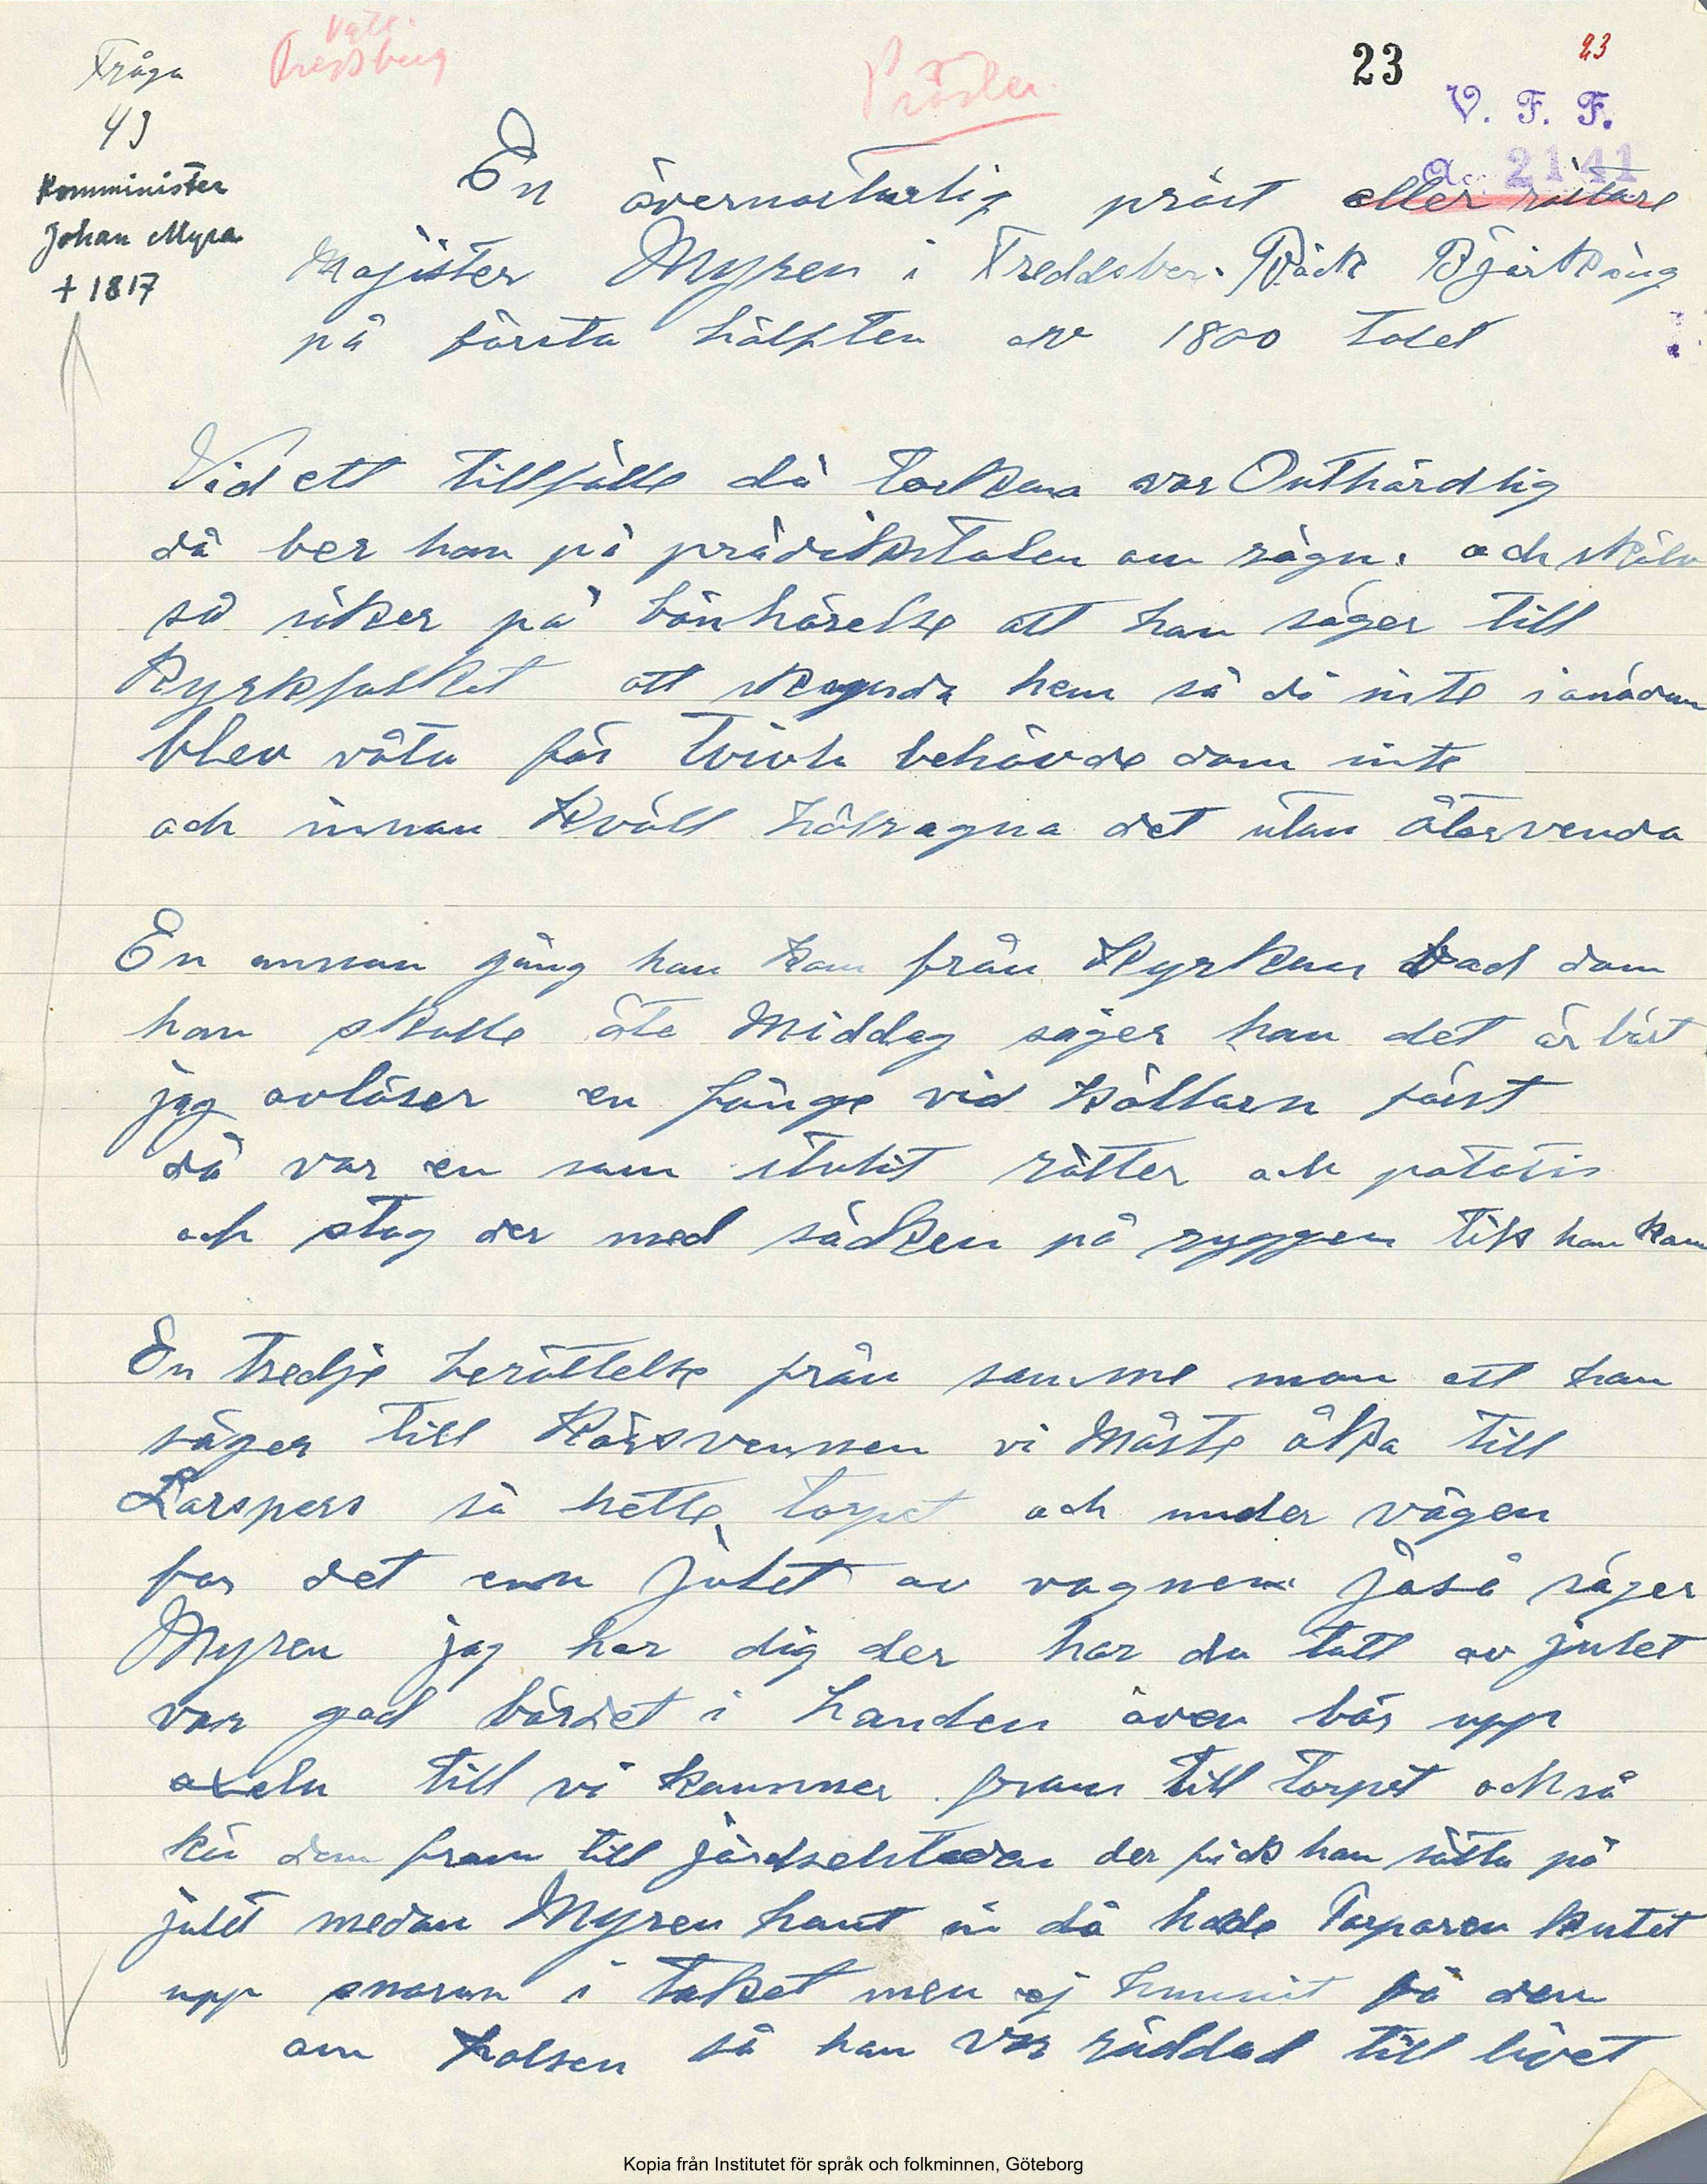 Fråga
43
Komminister
Johan Myra
+ 1817
Väll.
Fredsberg
Präster
23
23
V. F. F.
Acc. 2141
En övernaturlig präst eller rättare
Majister Myren i Freddsber. Bäck Bjärkäng
på första hälften av 1800 talet
Vid ett tillfälle då torkana var Outhärdlig
då ber han på prädikstolen om rägn. och själv
så säker på bönhörelse att han säger till
Kyrkfolket att skynda hem så di inte i onödan
blev våta för tvivla behövde dom inte
och innan kväll hölregna det utan återvenda
En annan gång han kom från Kyrkan bad dom
han skulle äta Middag säger han det är bäst
jag avlöser en fånge vid källarn först
då var en som stulit rötter och potatis
och stog der med säcken på ryggen tils han kom
En tredje berättelse från samme man att han
säger till Körsvennen vi Måste åka till
Larspers så hette torpet och under vägen
for det ena julet av vagnen jaså säger
Myren jag har dig der har du tatt av julet
var god bärdet i handen även bär upp
axeln till vi kommer fram till torpet också
kör dom fram till der fick han sätta på
julet medan Myren hant in då hade Torparen knutet
upp snaran i taket men ej hunnit få den
om halsen så han var räddad till livet
Kopia från Institutet för språk och folkminnen, Göteborg